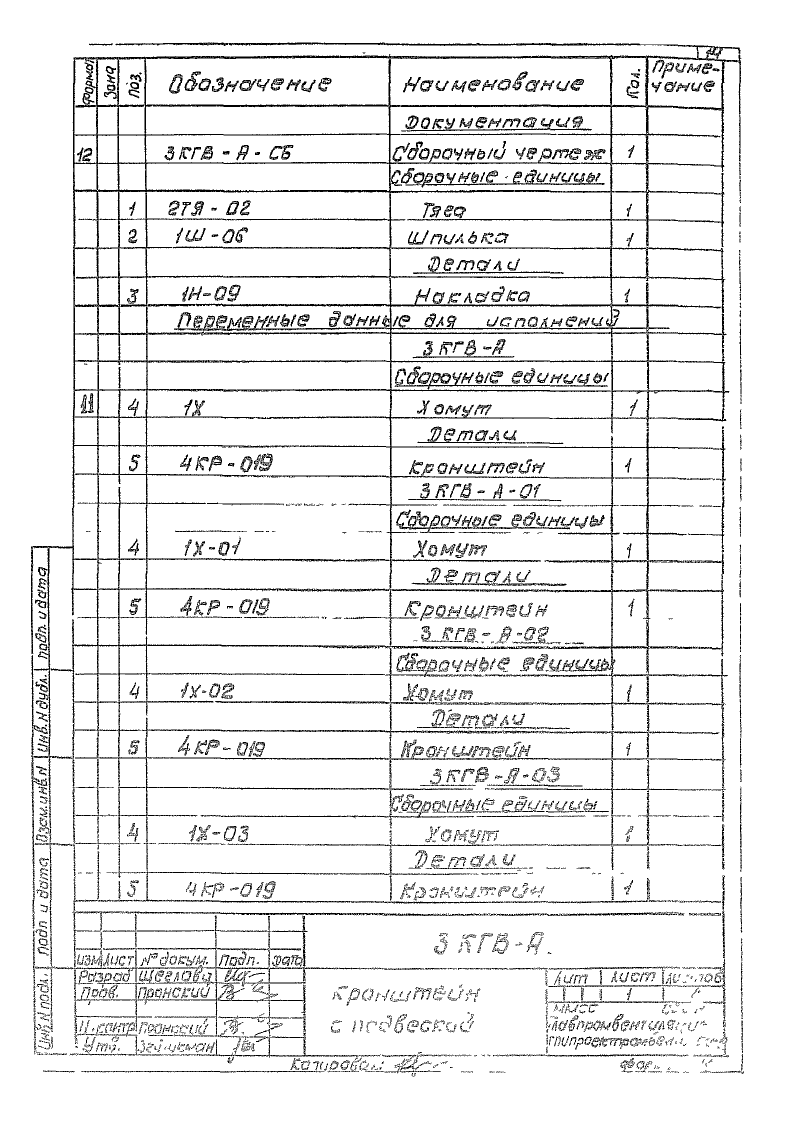 14
Формат Зона Поз. Обозначение Наименование Кол. Приме-
чание
Документация
12 3КГВ-А-СБ Сборочный чертеж 1
Сборочные единицы
1 2ТЯ-02 Тяга 1
2 1Ш-06 Шпилька 1
Детали
3 1Н-09 Накладка 1
Переменные данные для исполнений
3КГВ-А
Сборочные единицы
11 4 1Х Хомут 1
Детали
5 4КР-019 Кронштейн 1
3КГВ-А-01
Сборочные единицы
4 1Х-01 Хомут 1
Детали
5 4КР-019 Кронштейн 1
3КГВ-А-02
Сборочные единицы
4 1Х-02 Хомут 1
Детали
5 4КР-019 Кронштейн 1
3КГВ-А-03
Сборочные единицы
4 1Х-03 Хомут 1
Детали
5 4КР-019 Кронштейн 1
Инв.N подл. Подп и дата Взам.инв.N Инв.N дубл. Подп. и дата
3КГВ-А.
Изм Лист N° докум. Подп. Дата
Разраб
Пров. Пронский
Н.контр Пронский
Утв.
Кронштейн
с подвеской
Лит Лист
1
ММСС СССР
Копировал